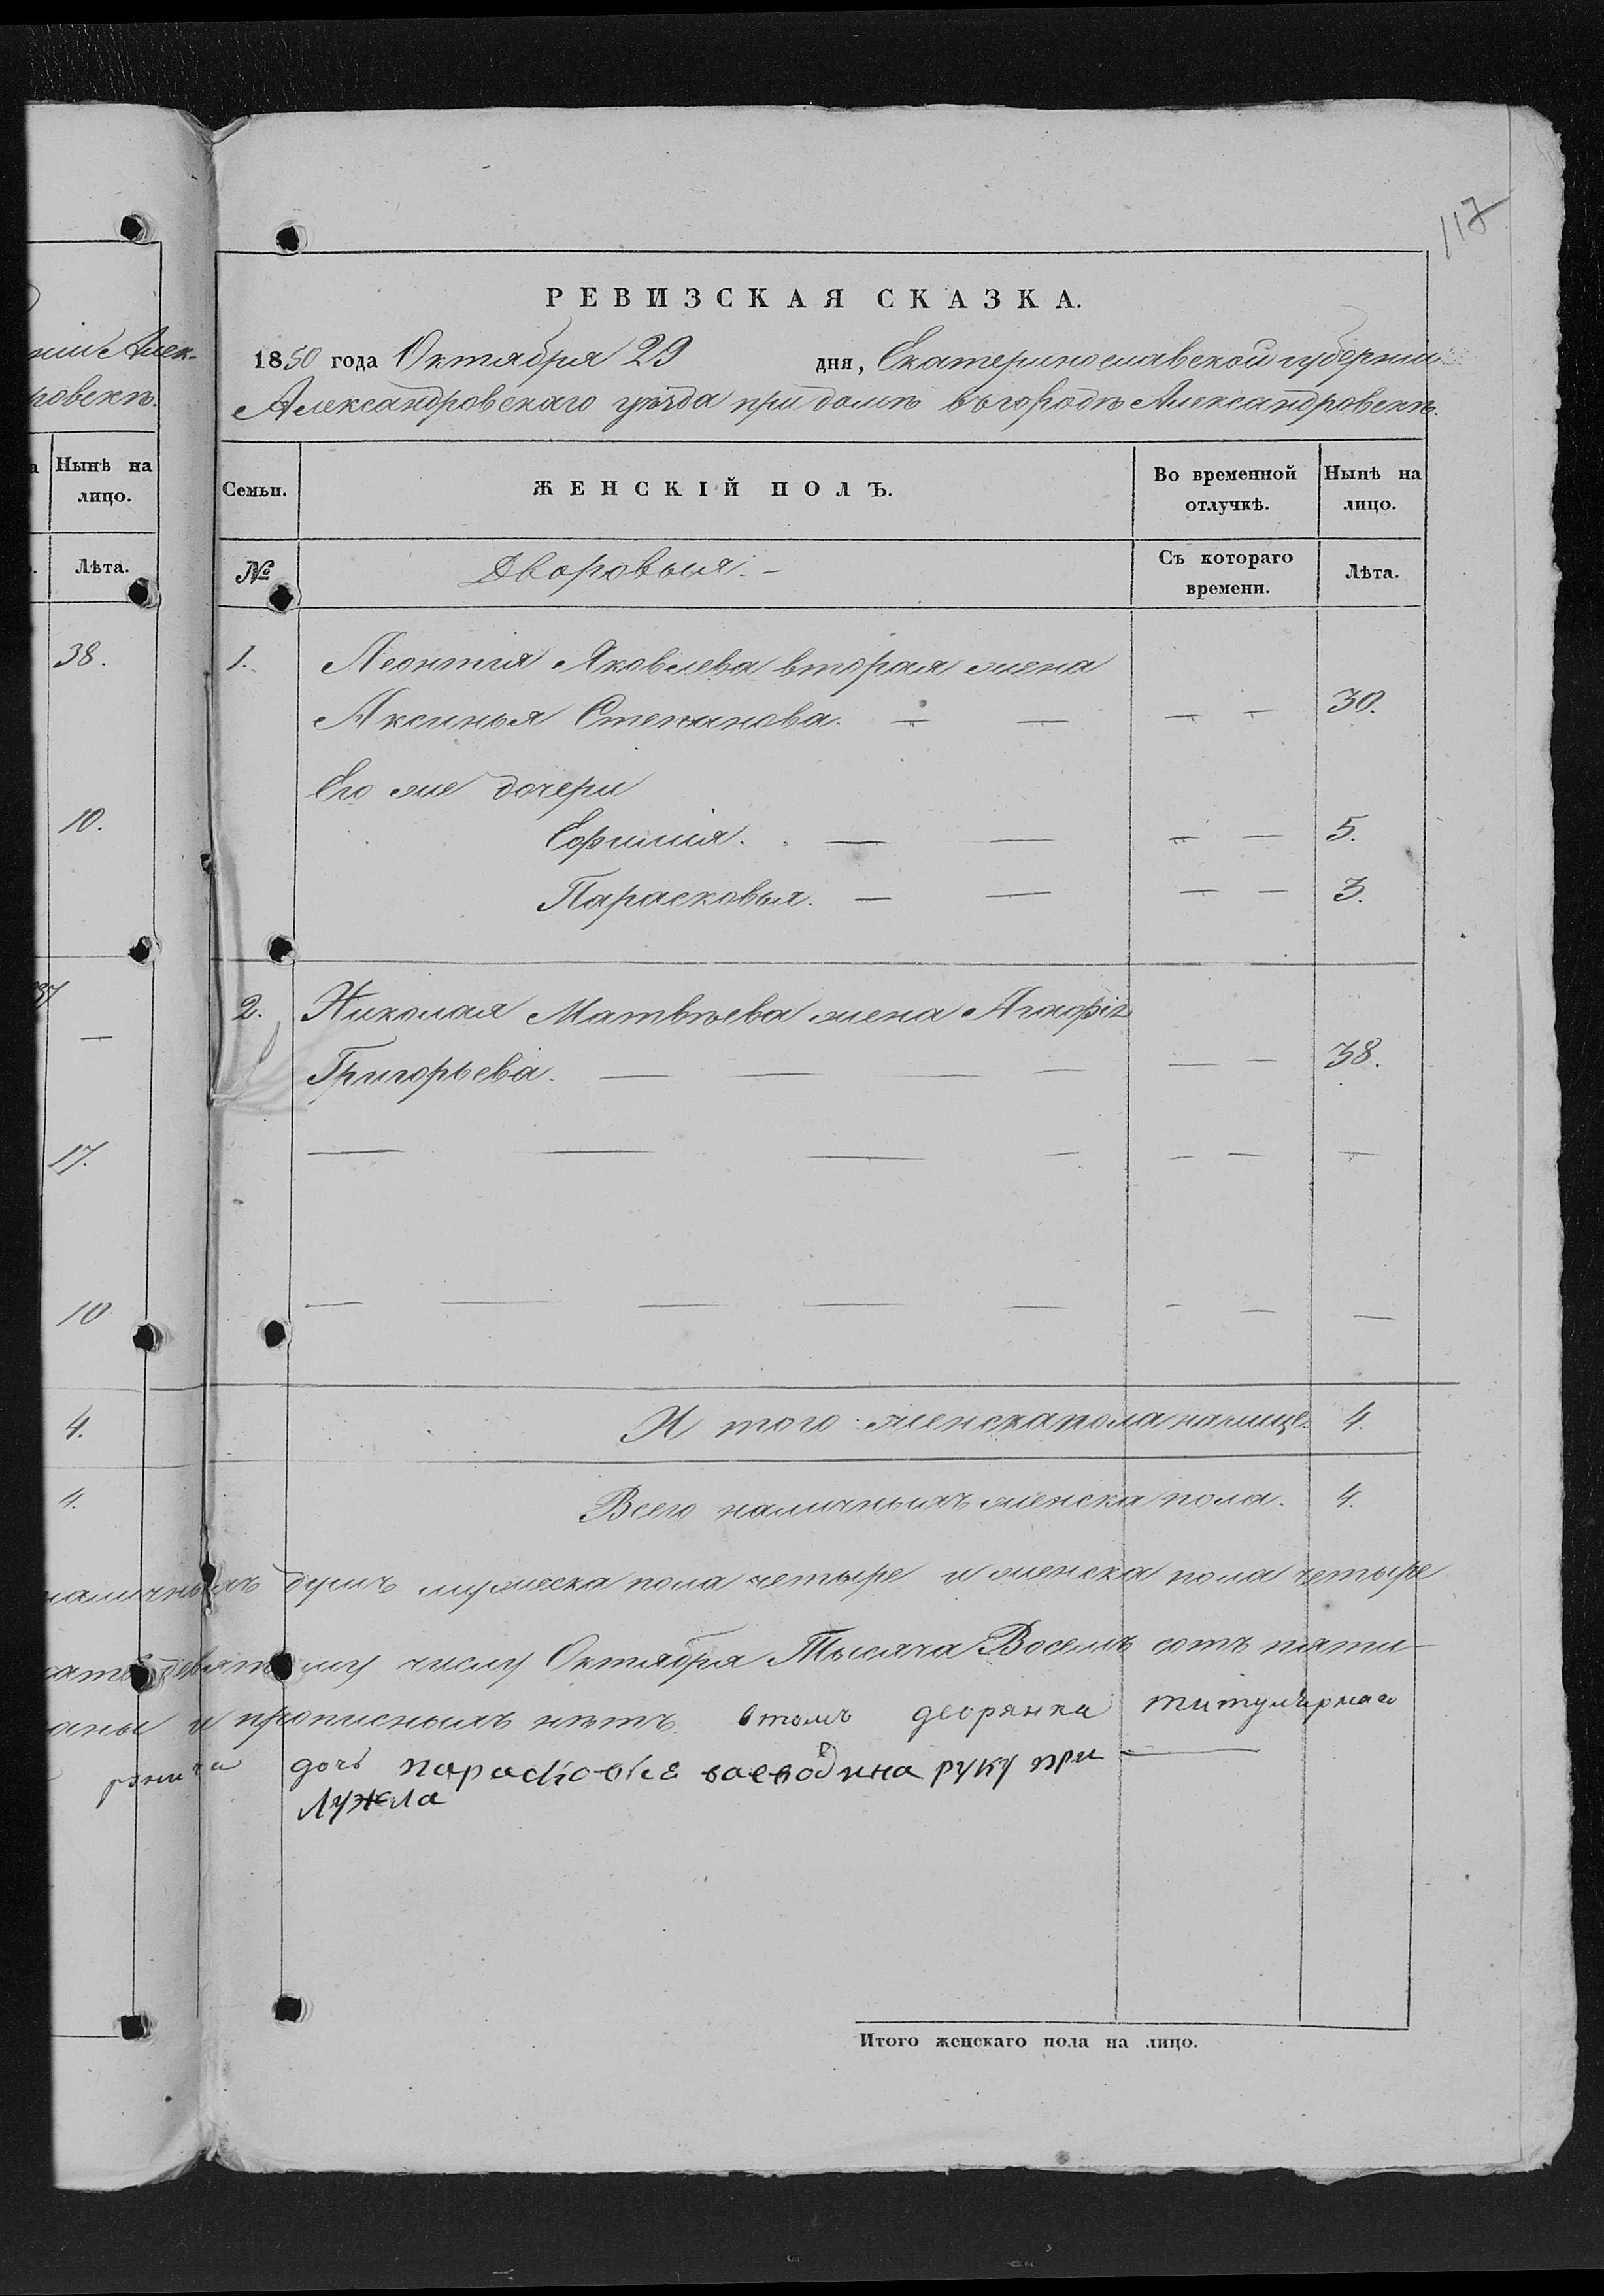 117
РЕВИЗСКАЯ СКАЗКА.
1850 года Октября 29 дня, Екатеринославской губернии
Александровскаго уѣзда при домѣ въ городѣ Александровскѣ.
Алек-
ровскѣ.
Нынѣ на
лицо.
Лѣта.
38.
10.
17.
10
4.
4.
Семьи. ЖЕНСКІЙ ПОЛЪ. Во временной отлучкѣ. Нынѣ на лицо.
№ Дворовыя. Съ котораго времени. Лѣта.
1. Леонтія Яковлева вторая жена
Аксинья Степанова. — — — — 30.
Его же дочери
Ефимія. — — — — 5.
Парасковья. — — — — 3.
2. Николая Матвѣева жена Агафія
Григорьева. — — — — — — 38.
— — — — — — —
— — — — — — — —
И того женска пола на лице. 4.
Всего наличныхъ женска пола. 4.
наличныхъ душъ мужеска пола четыре и женска пола четыре
девятому числу Октября Тысяча Восемъ сотъ пяти-
и прописныхъ нѣтъ. втомъ дворянка титулярнаго
дочь парасковѣ воеводина руку при
Лужела
Итого женскаго пола на лицо.